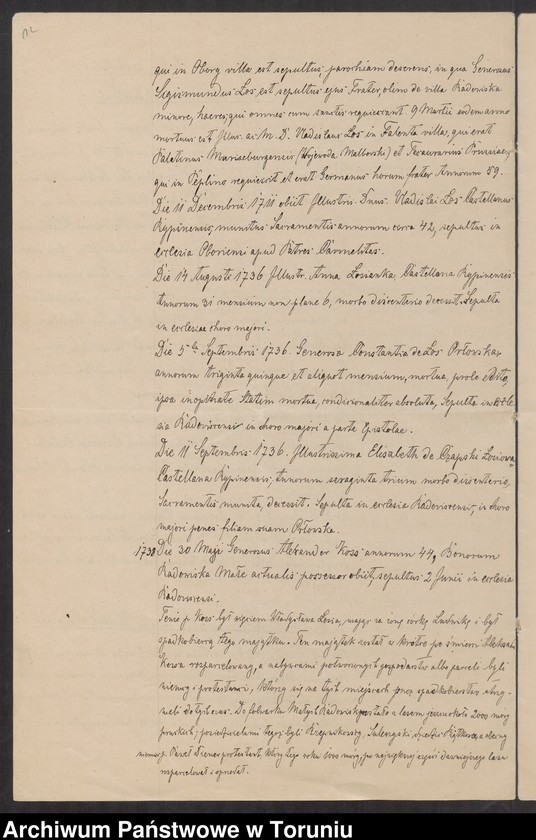 12
qui in Obory villa est sepultus, parochiam deserens, in qua Generosus
Sigismundus Los, est sepultus ejus Frater, olim de villa Radomiska
minore, haeres, qui omnes cum sanctis requiescant. 9 Martii eodem anno
mortuus est Illus. ac M. D. Vladislaus Los in Falenta villa, qui erat
Palatinus Mariaeburgensis (Wojewoda Malborski) et Thesaurarius Prussiae,
qui in Peplino requiescit et erat Germanus horum frater Annorum 59.
Die 11 Decembris 1711 obiit Illustris. Dnus. Vladislai Los Castellanus
Rypinensis, munitus Sacramentis annorum circa 42, sepultus in
ecclesia Oboriensi apud Patres Carmelitas.
Die 14 Augusti 1736 Illustr. Anna Losianka, Castellana Rypinensis
Annorum 31 mensium non plane 6, morbo disenterio decessit. Sepulta
in ecclesiae choro majori.
Die 5ta Septembris 1736. Generosa Constantia de Los Orłowska,
annorum triginta quinque et aliquot mensium, mortua, prole edita,
ipsa statim mortua, condicionaliter absoluta, Sepulta in eccle
sia Radoviscensi in choro majori a parte Epistolae.
Die 11 Septembris 1736. Illustrissima Elisabeth de Czapski Łosiowa
Castellana Rypinensis, Annorum sexaginta trium morbo disenterio,
Sacramentis munita, decessit. Sepulta in ecclesia Radoviscensi, in choro
majori penes filiam suam Orłowska.
1738 Die 30 Maji Generosus Alexander Koss annorum 44, Bonorum
Radowiska Małe actualis possessor obiit, sepultus 2 Junii in ecclesia
Radoviscensi.
Tenże p. Koss był zięciem Władysława Łosia, mając za żonę córkę Ludwikę i był
spadkobiercą tego majątku. Ten majątek został w krótce po śmierci Aleksand.
Kossa rozparcelowany, a nabywcami potworzonych gospodarstw albo parceli byli
niemcy i protestanci, którzy się na tych miejscach przez spadkobierstwo utrzy-
mali dotychczas. Do folwarku Małych Radowisk zostało z lasem jeszcze około 2000 mórg
pruskich; posiedzicielami tegoż byli Krzywkowscy, Sulerzyski, a obecny
niemiec p. Paweł protestant, który tego roku 1000 mórg, po największej części dawniejszego lasu
rozparcelował i sprzedał.
Archiwum Państwowe w Toruniu